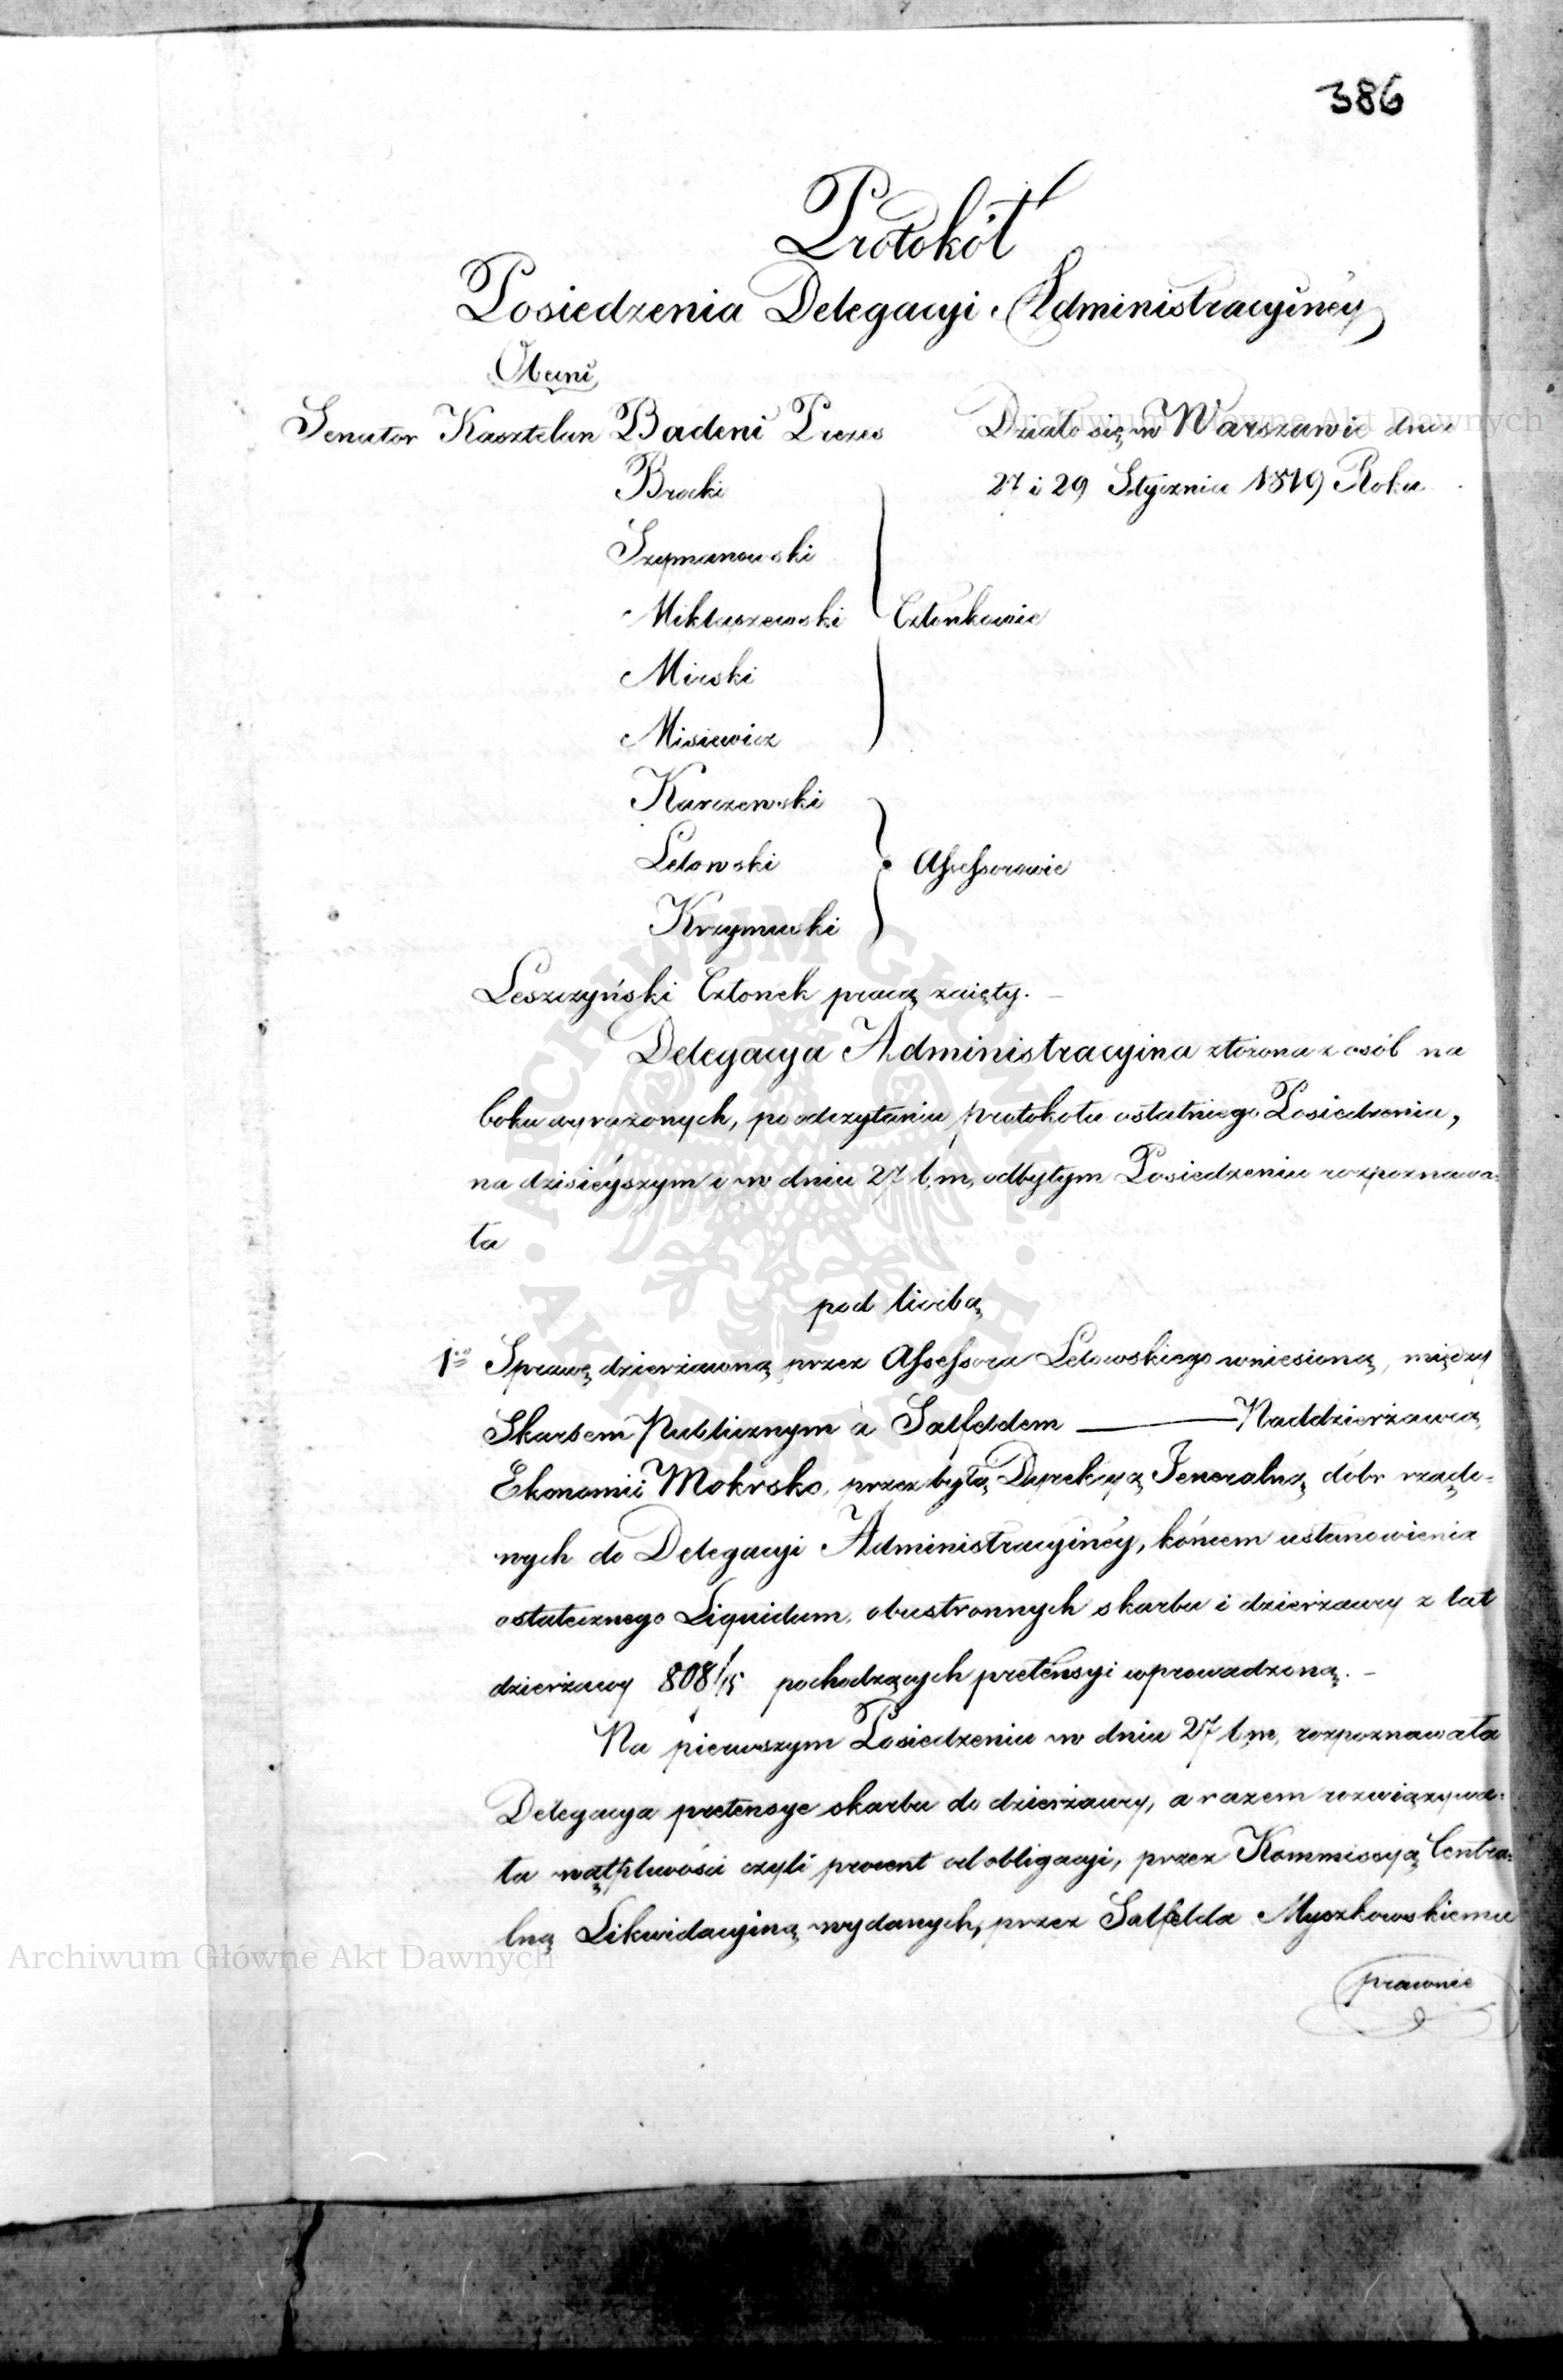 386
Protokół
Posiedzenia Delegacyi Administracyinéy
Obecni
Senator Kasztelan Badeni Prezes
Działo się w Warszawie dnia
27 i 29 Stycznia 1819 Roku
Brocki
Szymanowski
Mikłaszewski
Członkowie
Mirski
Misiewicz
Karczewski
Letowski
Assessorowie
Krzymuski
Leszczyński Członek pracą zaięty. –
Delegacya Administracyina złożona z osób na
boku wyrażonych, po odczytaniu protokołu ostatniego Posiedzenia,
na dzisiéyszym i w dniu 27 b.m. odbytym Posiedzeniu rozpoznawa-
ła
pod liczbą
1o Sprawę dzierżawną przez Assessora Letowskiego wniesioną, między
Skarbem Publicznym a Salfeldem ——— Naddzierżawcą
Ekonomii Mokrsko, przez byłą Dyrekcyą Jeneralną dóbr rządo-
wych do Delegacyi Administracyinéy, końcem ustanowienia
ostatecznego Liquidum, obustronnych skarbu i dzierżawcy z lat
dzierżawy 808/15 pochodzących pretensyi wprowadzoną. –
Na pierwszym Posiedzeniu w dniu 27 b.m. rozpoznawała
Delegacya pretensye skarbu do dzierżawcy, a razem rozwiązywa-
ła wątpliwości czyli procent od obligacyi, przez Kommissyą Centra-
lną Likwidacyiną wydanych, przez Salfelda Myszkowskiemu
prawnie
Archiwum Główne Akt Dawnych
Archiwum Główne Akt Dawnych
ARCHIWUM GŁÓWNE · AKT DAWNYCH ·